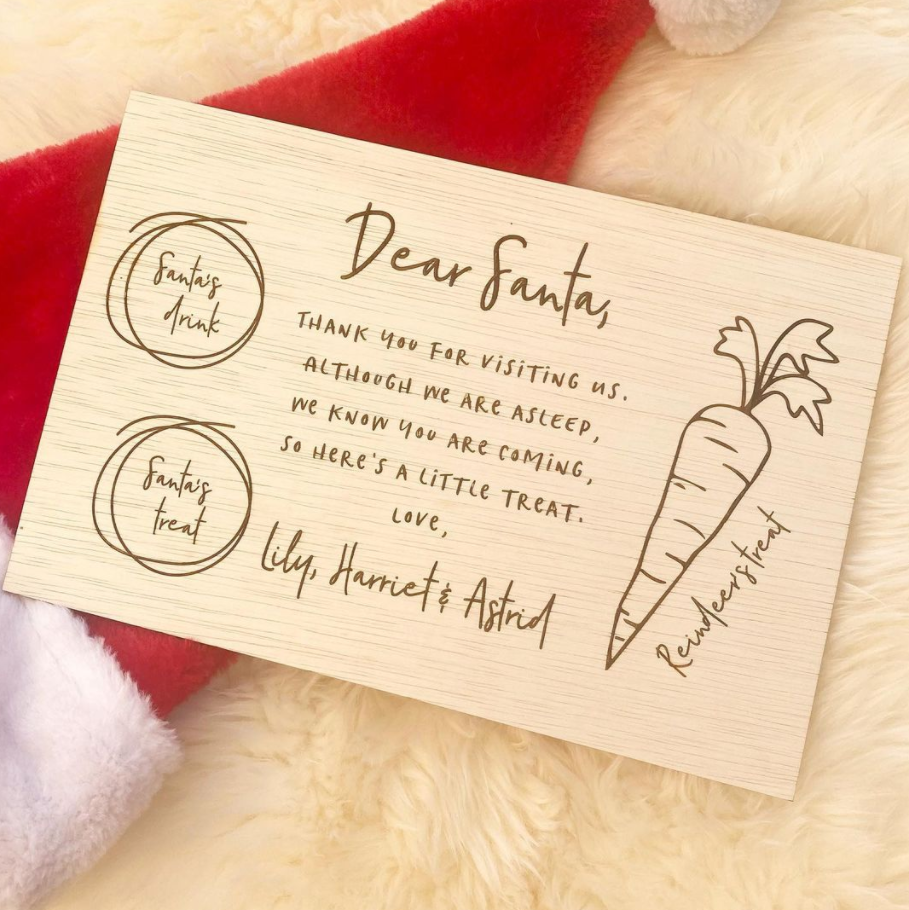 Santa's
drink
Santa's
treat
Dear Santa,
THANK YOU FOR VISITING US.
ALTHOUGH WE ARE ASLEEP,
WE KNOW YOU ARE COMING,
SO HERE'S A LITTLE TREAT.
LOVE,
Lily, Harriet & Astrid
Reindeer's treat